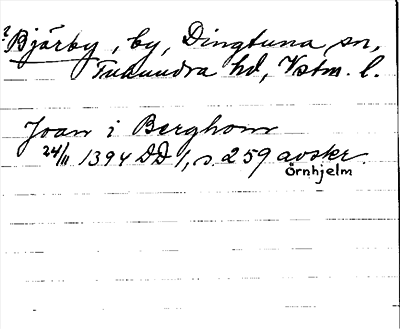 ? Bjärby, by, Dingtuna sn,
Tuhundra hd, Vstm. l.
Joan i Berghom
24/11 1394 DD 1, s. 259 avskr.
Örnhjelm